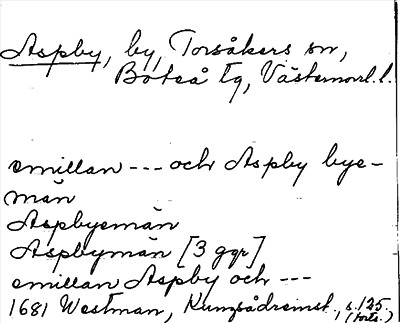 Aspby, by, Torsåkers sn,
Boteå tg, Västernorrl. l.
emillan --- och Aspby bye-
män
Aspbyemän
Aspbymän [3 ggr]
emillan Aspby och ---
1681 Westman, s. 125.
(forts.)